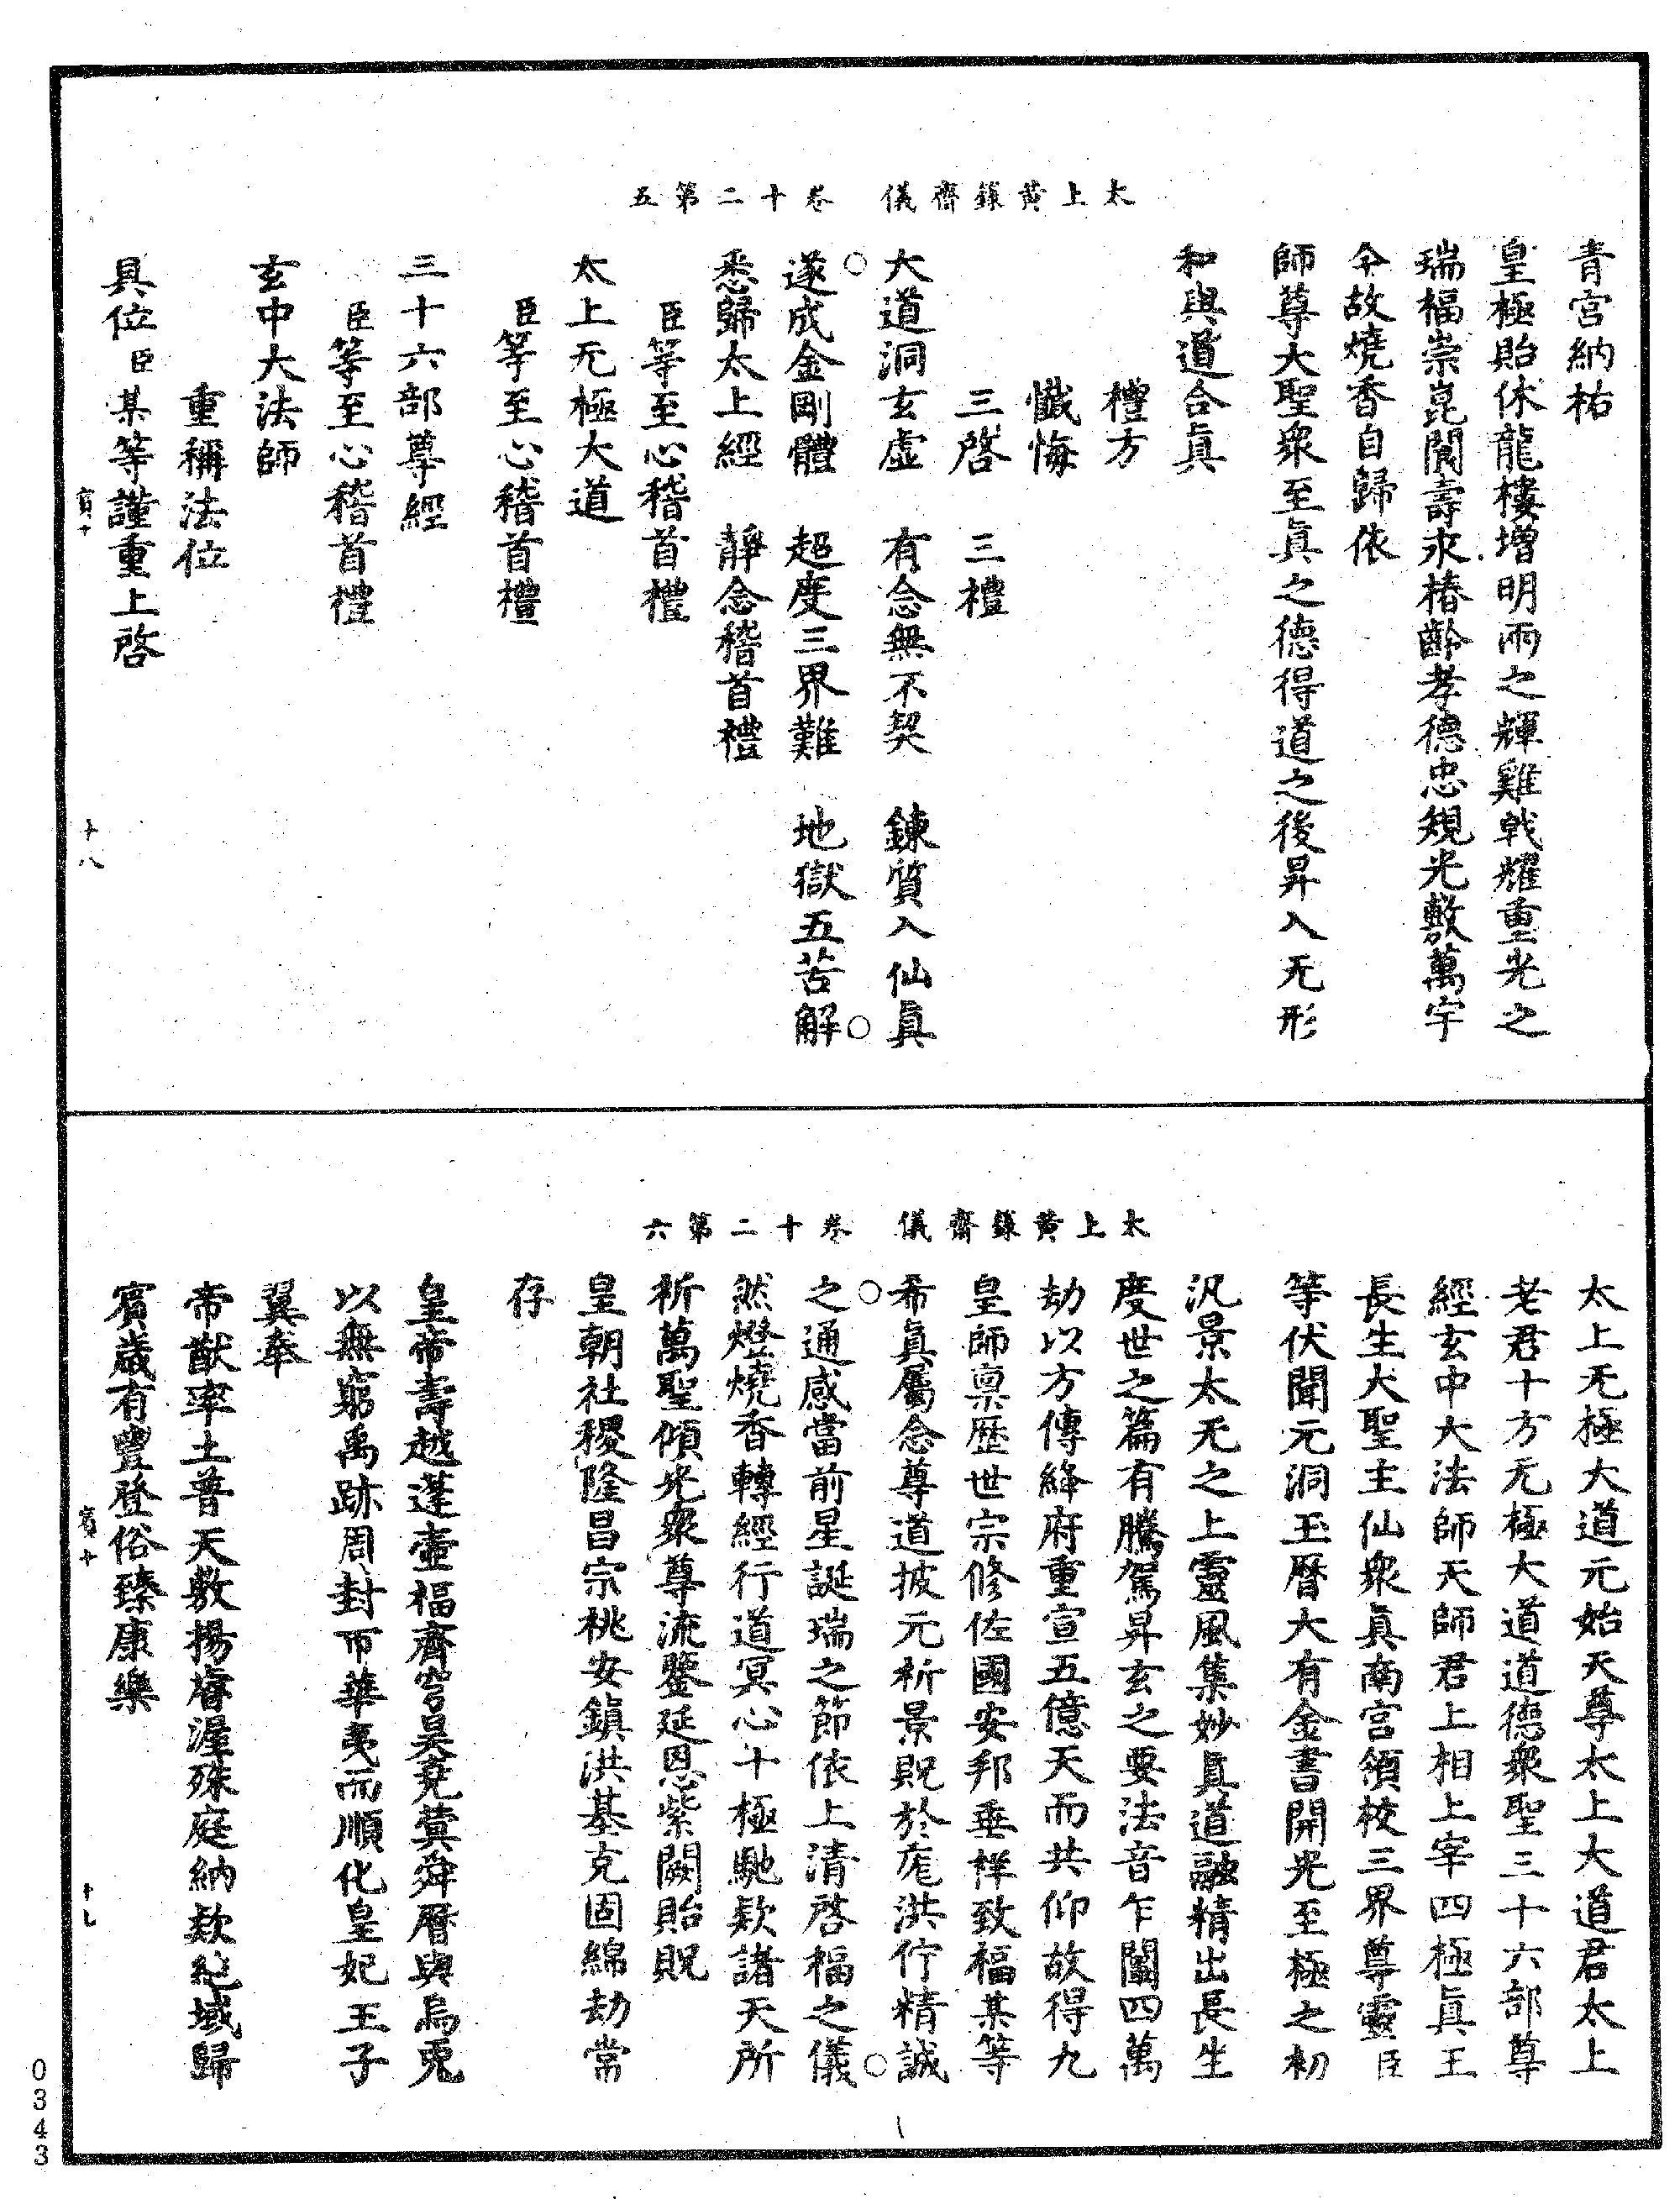 太上黃籙齋儀　卷二十第五
青宮納祐
皇極貽休龍樓增明兩之輝雞戟耀重光之
瑞福崇崑閬壽永椿齡孝德忠規光敷萬宇
今故燒香自歸依
師尊大聖衆至眞之德得道之後昇入无形
和與道合眞
禮方
懺悔
三啓　三禮
大道洞玄虛　有念無不契　鍊質入仙眞
遂成金剛體　超度三界難　地獄五苦解
悉歸太上經　靜念稽首禮
臣等至心稽首禮
太上无極大道
臣等至心稽首禮
三十六部尊經
臣等至心稽首禮
玄中大法師
重稱法位
具位臣某等謹重上啓
賓十　十八
太上黃籙齋儀　卷二十第六
太上无極大道元始天尊太上大道君太上
老君十方无極大道道德衆聖三十六部尊
經玄中大法師天師君上相上宰四極眞王
長生大聖主仙衆眞南宮領校三界尊靈臣
等伏聞元洞玉曆大有金書開光至極之初
汎景太无之上靈風集妙眞道融精出長生
度世之篇有騰駕昇玄之要法音乍闡四萬
劫以方傳絳府重宣五億天而共仰故得九
皇師禀歷世宗修佐國安邦垂祥致福某等
希眞屬念尊道披元祈景貺於庬洪佇精誠
之通感當前星誕瑞之節依上清啓福之儀
然燈燒香轉經行道冥心十極馳欵諸天所
祈萬聖傾光衆尊流鑒延恩紫闕貽貺
皇朝社稷隆昌宗祧安鎮洪基克固綿劫常
存
皇帝壽越蓬壺福齊穹昊堯蓂舜曆與烏兎
以無窮禹跡周封帀華夷而順化皇妃王子
翼奉
帝猷率土普天敷揚睿渥殊庭納欵絶域歸
賓歲有豐登俗臻康樂
賓十　十九
0343